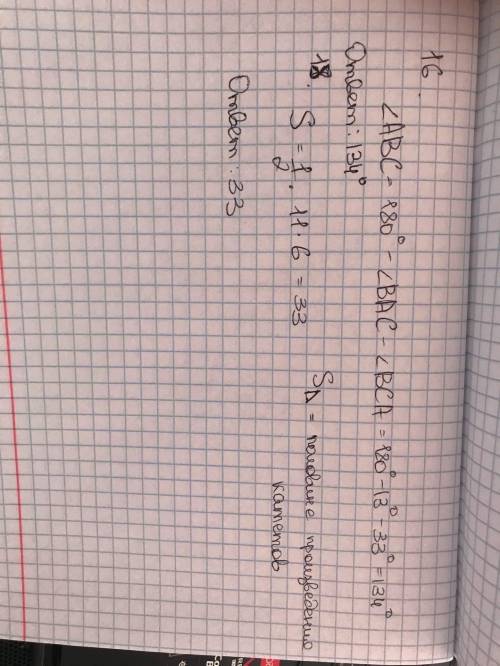 16.
∠ABC = 180° - ∠BAC - ∠BCA = 180° - 13° - 33° = 134°
Ответ: 134°
18. S = 1/2 · 11 · 6 = 33
S△ = половине произведению
катетов
Ответ: 33